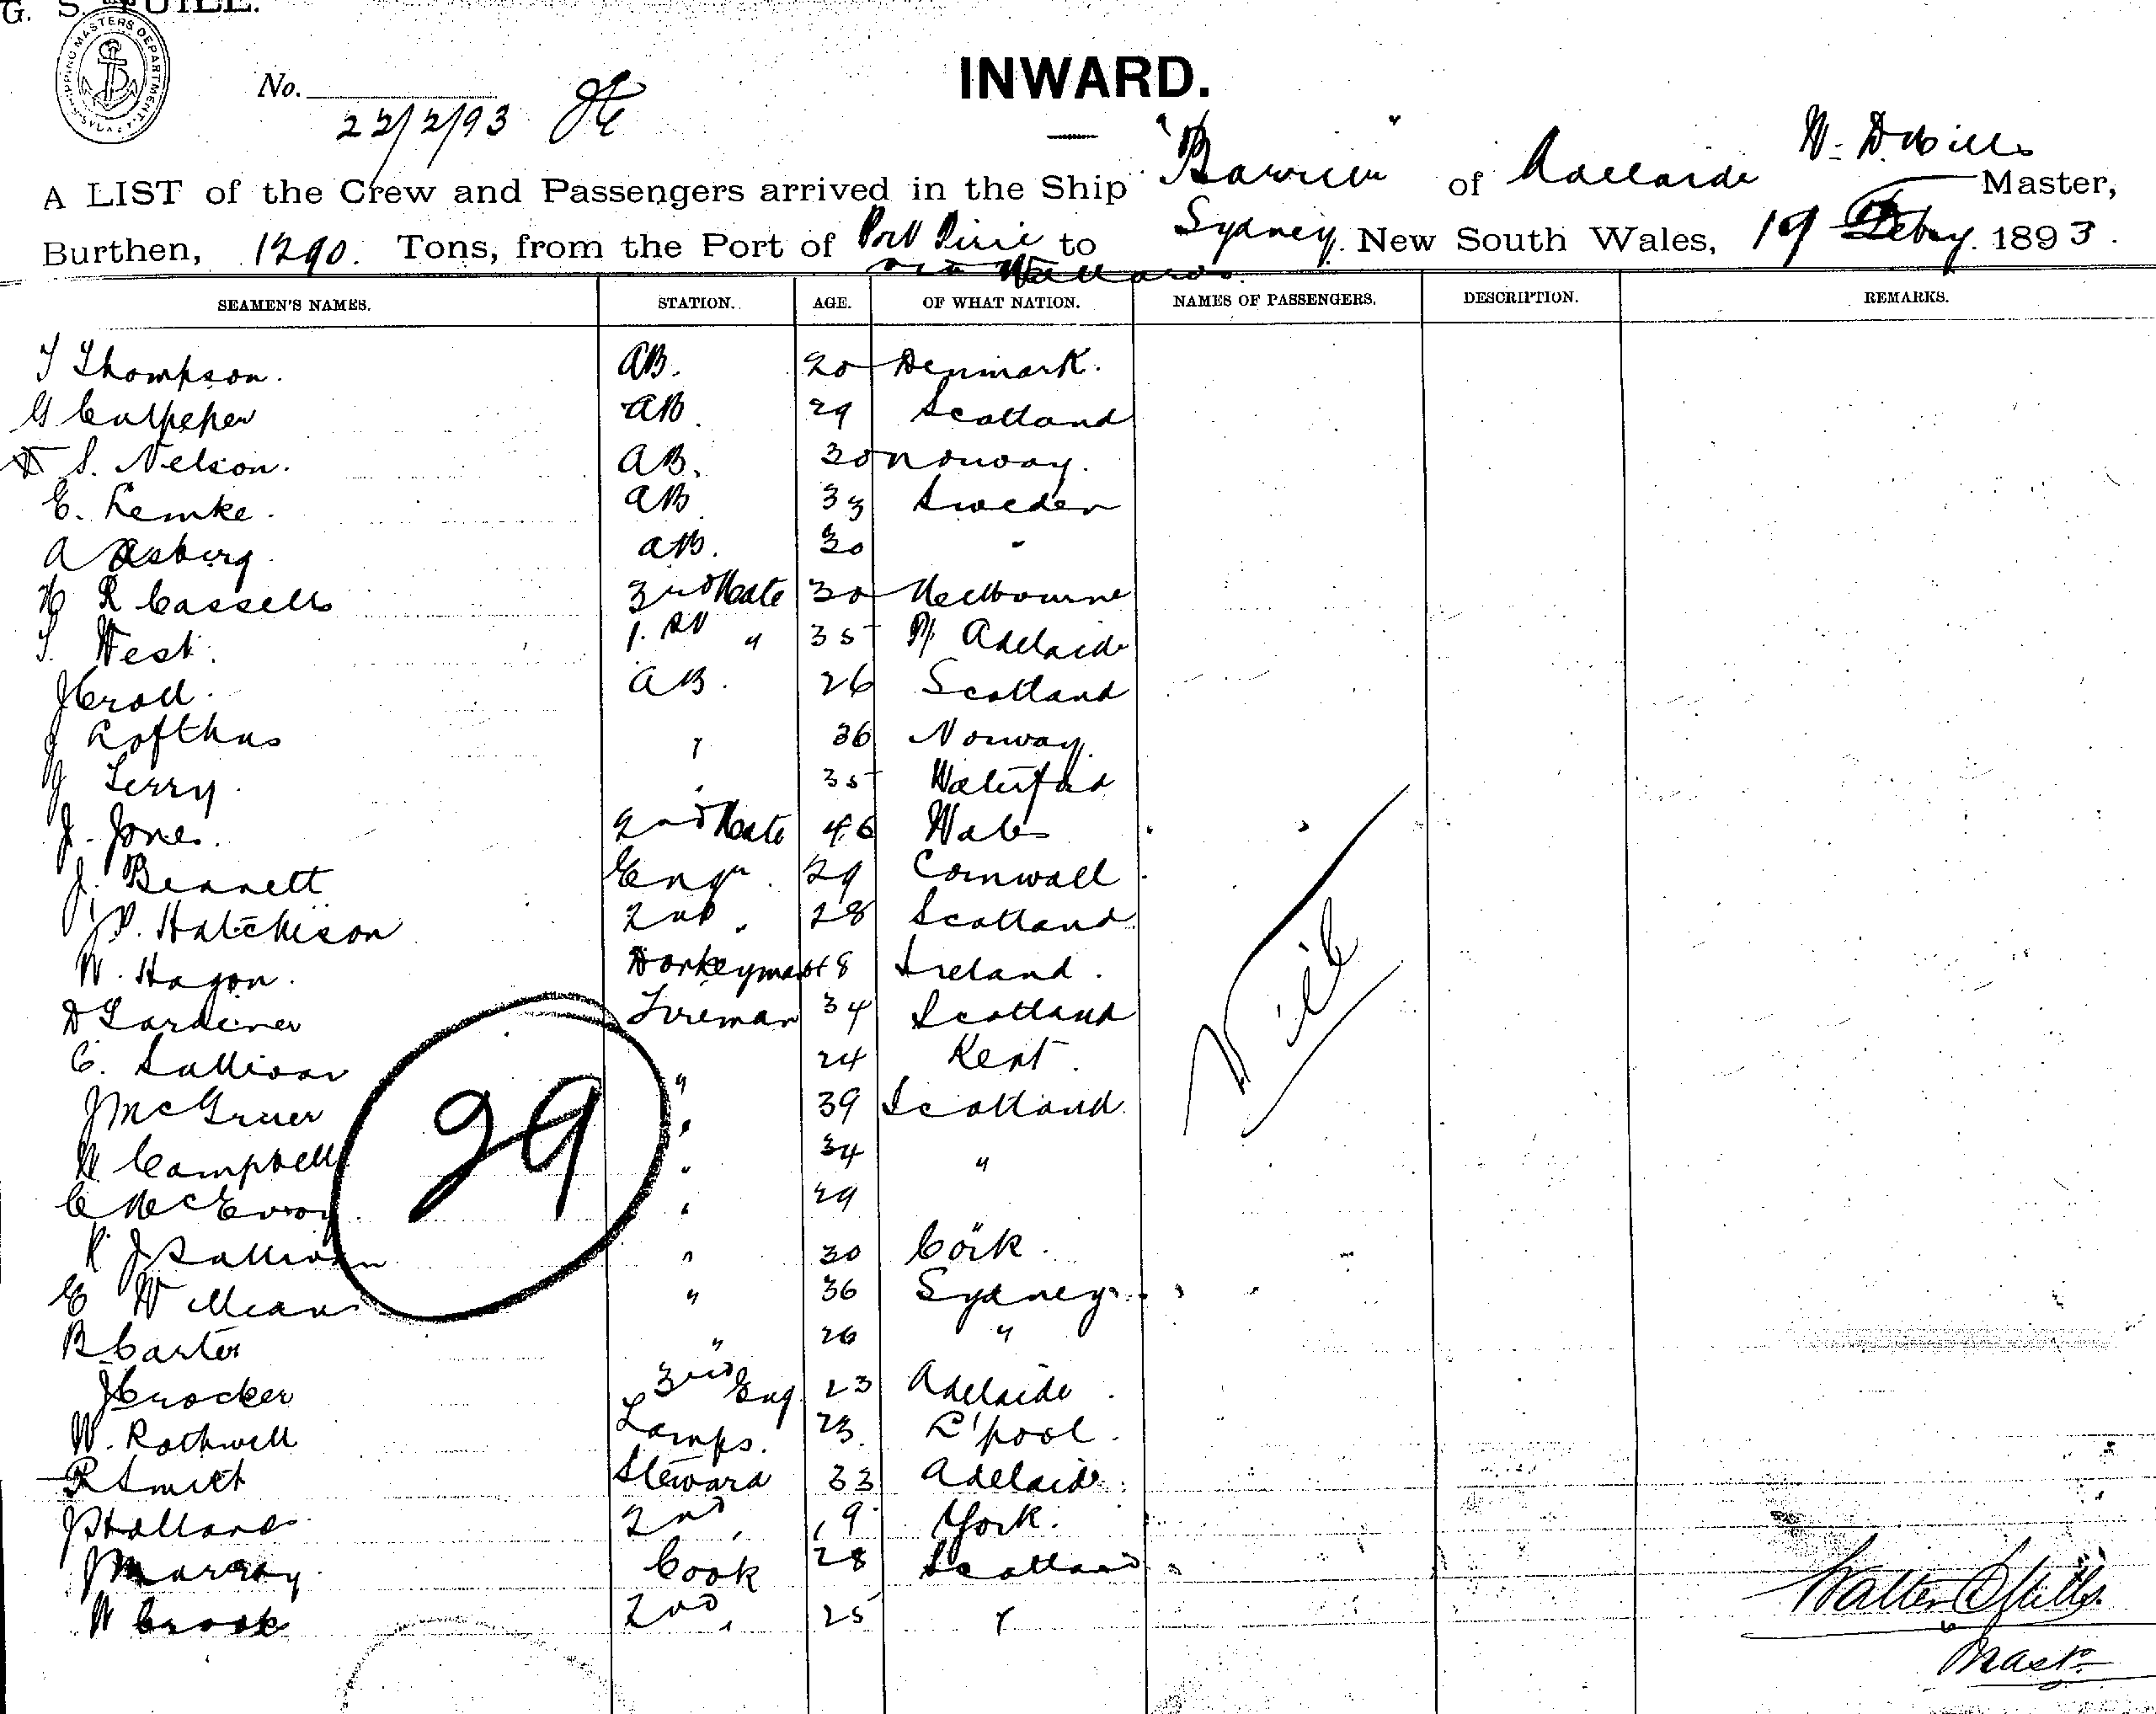 G. S.
SHIPPING MASTERS DEPARTMENT
No.
22/2/93
INWARD.
W. D. Mills
A LIST of the Crew and Passengers arrived in the Ship "Barrier" of Adelaide Master,
Burthen, 1290. Tons, from the Port of Port Pirie to Sydney. New South Wales, 19 Febry. 1893.
via Wallaroo.
SEAMEN'S NAMES. STATION. AGE. OF WHAT NATION. NAMES OF PASSENGERS. DESCRIPTION. REMARKS.
T Thompson. AB. 20 Denmark.
G Culpeper AB. 29 Scotland
S. Nelson. AB. 30 Norway.
E. Lemke. AB 33 Sweden
A Asberg AB. 30 "
H R Cassells 3rd Mate 30 Melbourne
S. West. 1. " 35 Pt Adelaide
J Croll. AB. 26 Scotland
J Lofthus " 36 Norway.
J Terry. " 35 Waterford
J. Jones. 2nd Mate 46 Wales
J. Bennett Engr. 29 Cornwall
J. P. Hutchison 2nd " 28 Scotland
W. Hagon. Donkeyman 48 Ireland.
D Gardiner Fireman 34 Scotland
C. Sullivan " 24 Kent.
J McGruer " 39 Scotland
Campbell " 34 "
C McEvoy. " 29
J Sullivan " 30 Cork.
E Williams " 36 Sydney
B Carter " 26 "
J Crocker 3rd Eng 23 Adelaide.
W. Rothwell Lamps. 23. L'pool.
R Smith Steward 33 Adelaide.
J Holland 2nd " 19 York.
J Murray Cook 28 Scotland
W Crook 2nd " 25 "
29
Nil
Walter D Mills.
Mastr